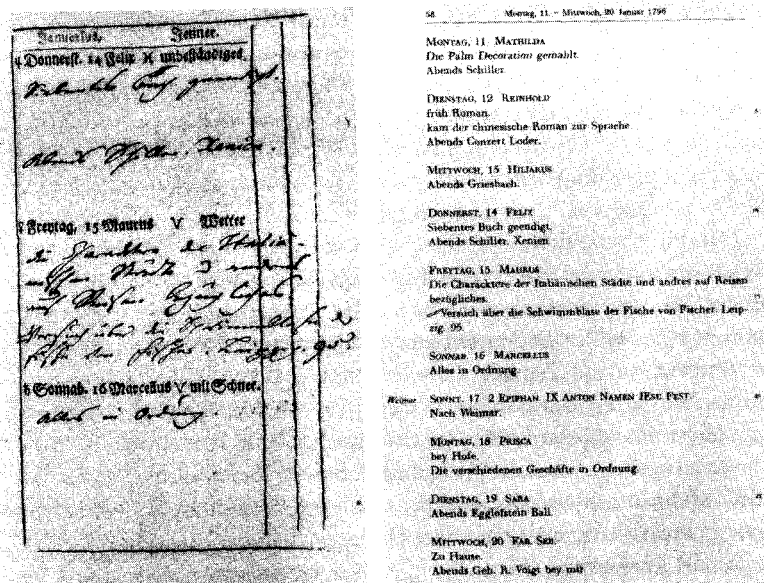 Januarius, Jenner.
Donnerst. 14 Felix unbeständiges.
Siebentes Buch geendigt.
Abends Schiller. Xenien.
Freytag, 15 Maurus Wetter
die Charaktere der Italiä-
nischen Städte u andres
auf Reisen bezügliches
Versuch über die Schwimmblase der
Fische von Fischer. Leipzig. 95.
Sonnab. 16 Marcellus mit Schnee.
Alles in Ordnung.
58 Montag, 11. – Mittwoch, 20. Januar 1796
MONTAG, 11 MATHILDA
Die Palm Decoration gemahlt.
Abends Schiller.
DIENSTAG, 12 REINHOLD
früh Roman.
kam der chinesische Roman zur Sprache
Abends Conzert Loder.
MITTWOCH, 13 HILIARUS
Abends Griesbach.
DONNERST. 14 FELIX
Siebentes Buch geendigt.
Abends Schiller. Xenien
FREYTAG, 15 MAURUS
Die Characktere der Italiänischen Städte und andres auf Reisen
bezügliches.
Versuch über die Schwimmblase der Fische von Fischer. Leip-
zig. 95.
SONNAB. 16 MARCELLUS
Alles in Ordnung
Weimar SONNT. 17 2 EPIPHAN. IX ANTON NAMEN JESU FEST
Nach Weimar.
MONTAG, 18 PRISCA
bey Hofe.
Die verschiedenen Geschäfte in Ordnung
DIENSTAG, 19 SARA
Abends Egglofstein Ball.
MITTWOCH, 20 FAB. SEB.
Zu Hause.
Abends Geh. R. Voigt bey mir